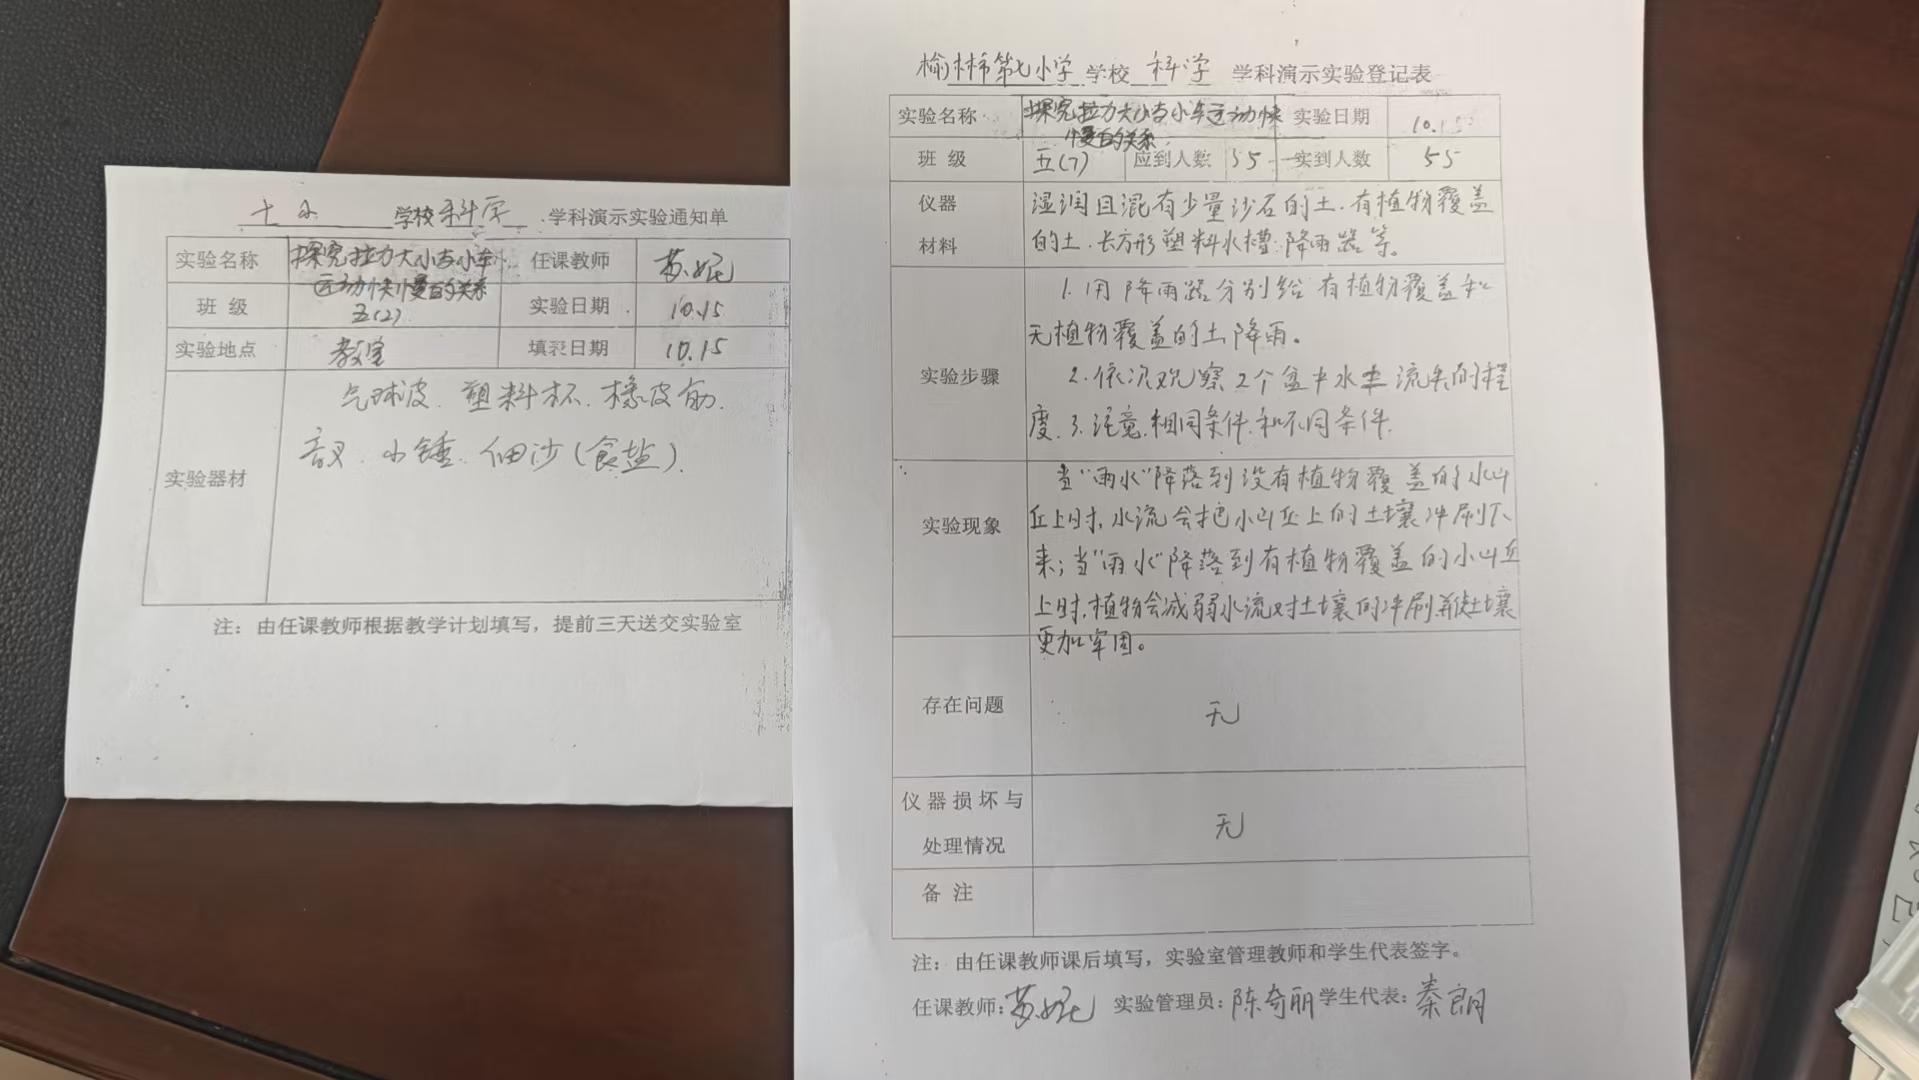 七小 学校 科学 学科演示实验通知单
实验名称 探究拉力大小与小车运动快慢的关系 任课教师
班 级 五(2) 实验日期 10.15
实验地点 教室 填表日期 10.15
实验器材
气球皮、塑料杯、橡皮筋、
音叉、小锤、细沙(食盐)、
注：由任课教师根据教学计划填写，提前三天送交实验室
榆林市第七小学 学校 科学 学科演示实验登记表
实验名称 探究拉力大小与小车运动快慢的关系 实验日期 10.15
班 级 五(7) 应到人数 55 实到人数 55
仪器材料
湿润且混有少量沙石的土、有植物覆盖
的土、长方形塑料水槽、降雨器等。
实验步骤
1.用降雨器分别给有植物覆盖和
无植物覆盖的土降雨。
2.依次观察2个盆中水土流失的程
度.3.注意相同条件和不同条件.
实验现象
当"雨水"降落到没有植物覆盖的小山
丘上时,水流会把小山丘上的土壤冲刷下
来;当"雨水"降落到有植物覆盖的小山丘
上时,植物会减弱水流对土壤的冲刷,并使土壤
更加牢固。
存在问题 无
仪器损坏与处理情况 无
备 注
注：由任课教师课后填写，实验室管理教师和学生代表签字。
任课教师: 实验管理员: 陈奇丽 学生代表: 秦朗